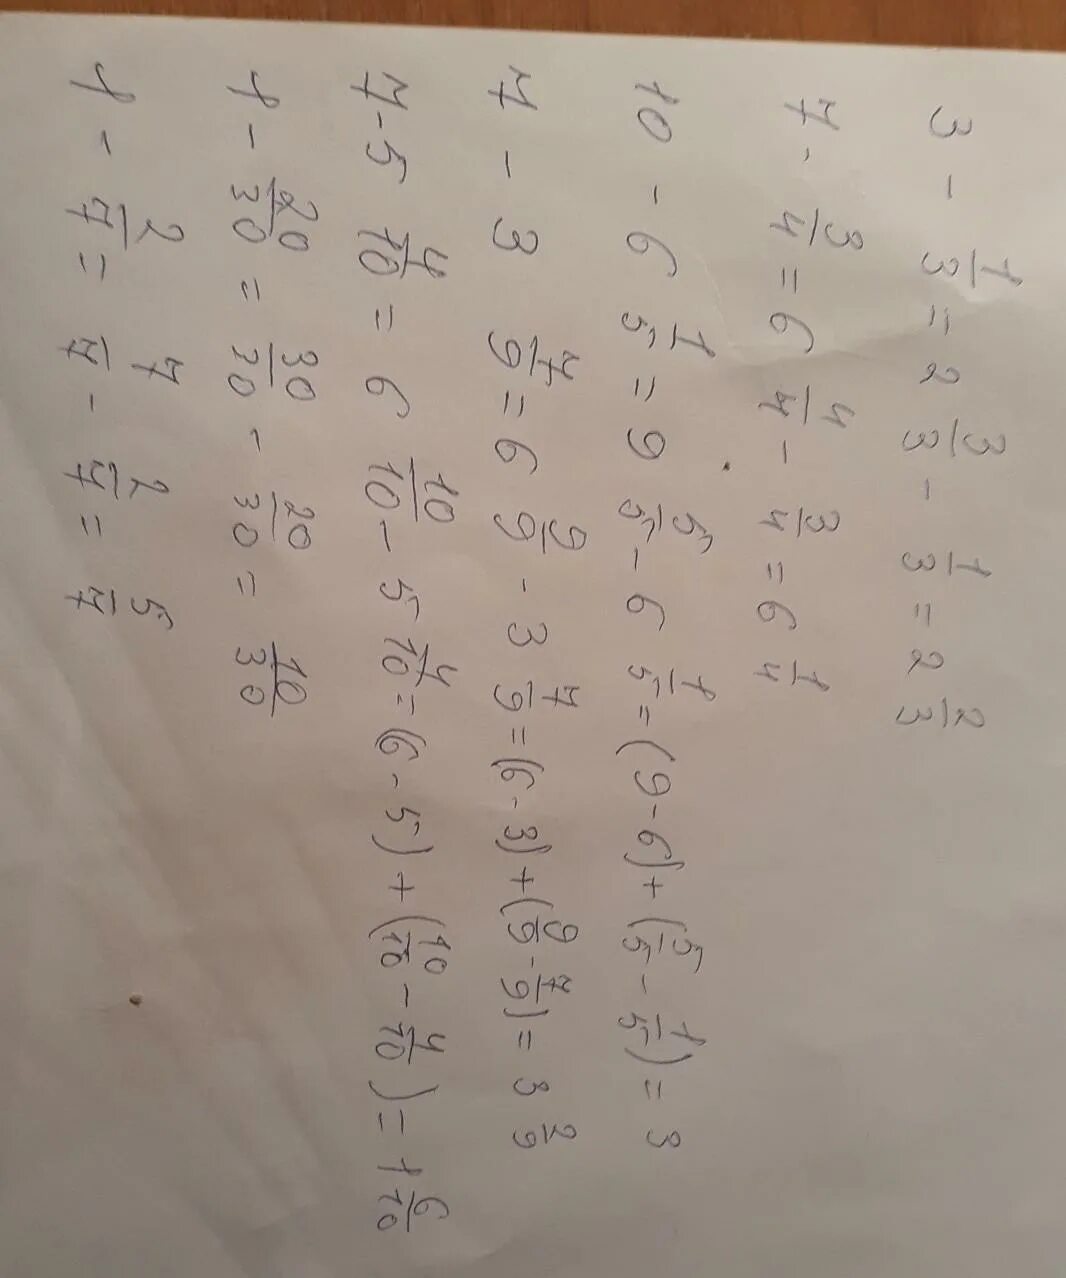 3 - 1/3 = 2 3/3 - 1/3 = 2 2/3
7 - 3/4 = 6 4/4 - 3/4 = 6 1/4
10 - 6 1/5 = 9 5/5 - 6 1/5 = (9-6) + (5/5 - 1/5) = 3
7 - 3 7/9 = 6 9/9 - 3 7/9 = (6-3) + (9/9 - 7/9) = 3 2/9
7 - 5 4/10 = 6 10/10 - 5 4/10 = (6-5) + (10/10 - 4/10) = 1 6/10
1 - 20/30 = 30/30 - 20/30 = 10/30
1 - 2/7 = 7/7 - 2/7 = 5/7